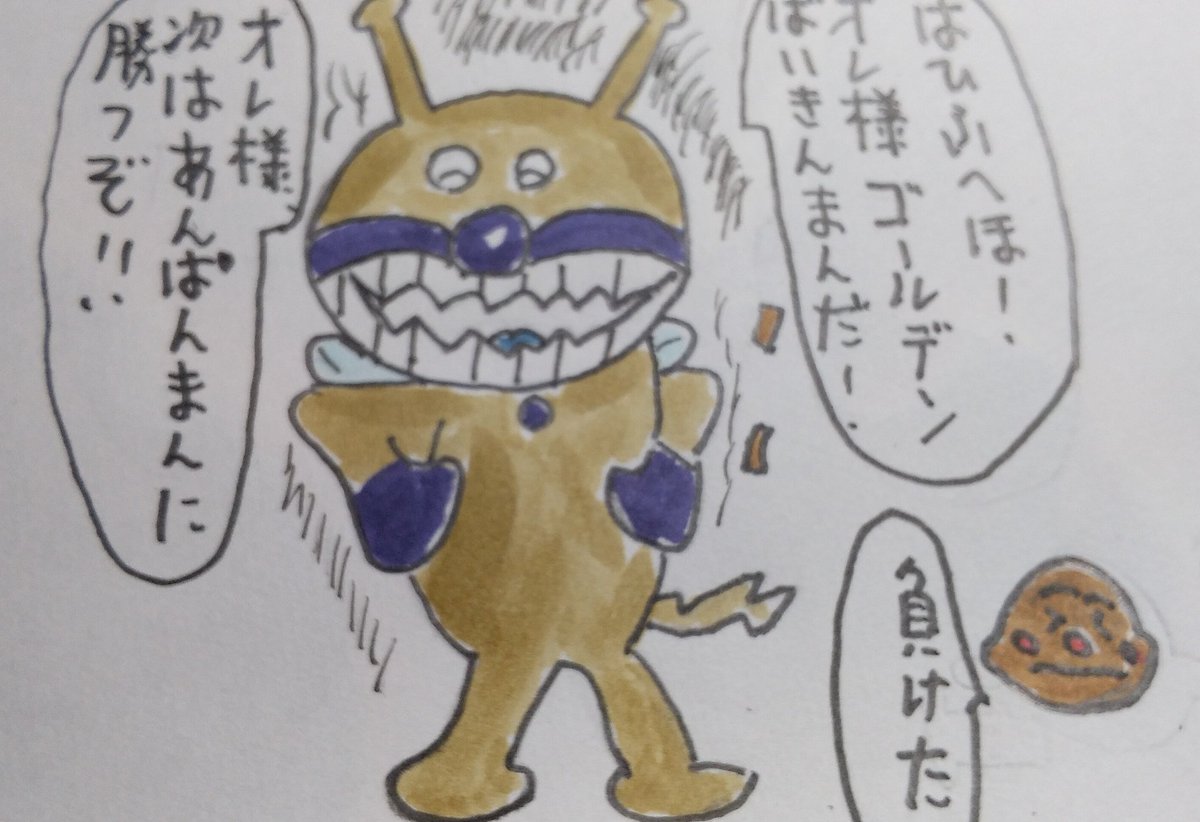 はひふへほー。
オレ様ゴールデン
ばいきんまんだー。
オレ様
次はあんぱんまんに
勝つぞ!!
負けた